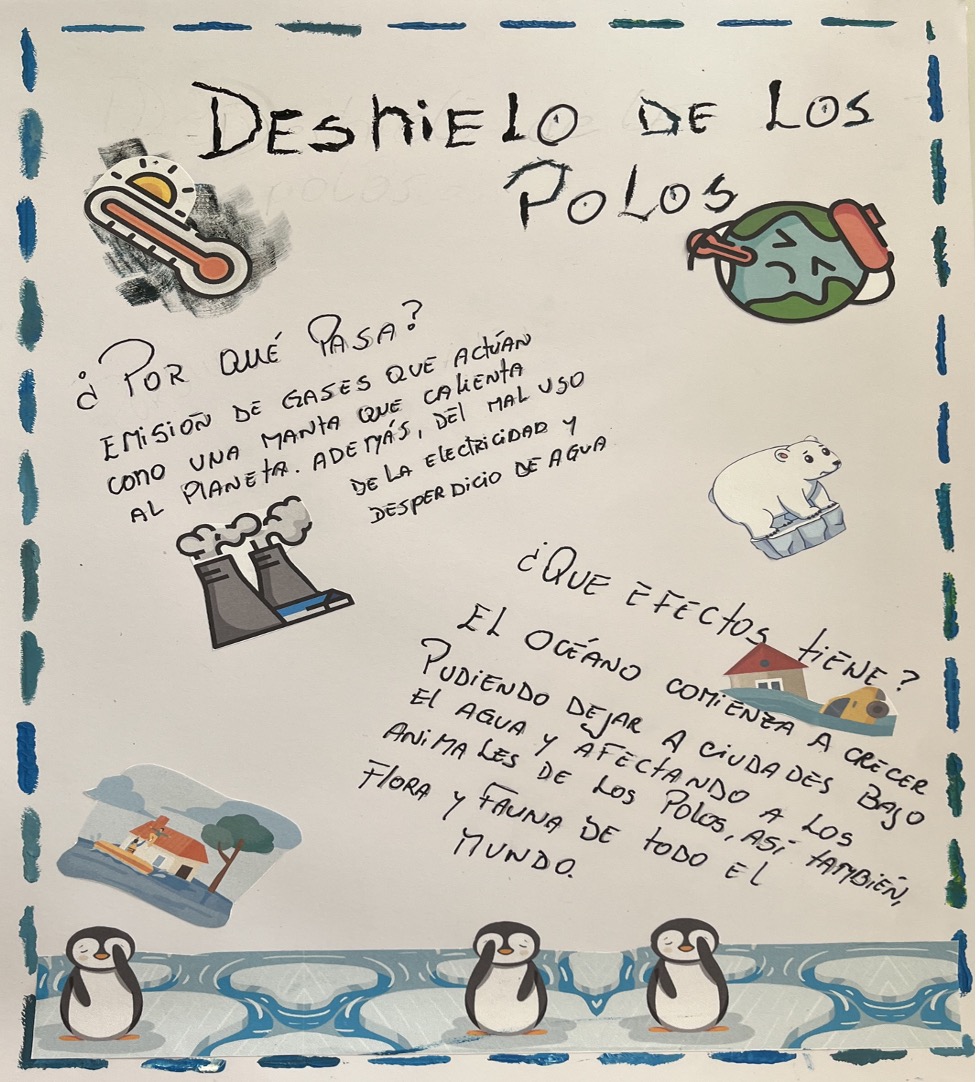 DESHIELO DE LOS
POLOS
¿POR QUÉ PASA?
EMISIÓN DE GASES QUE ACTÚAN
COMO UNA MANTA QUE CALIENTA
AL PLANETA. ADEMÁS, DEL MAL USO
DE LA ELECTRICIDAD Y
DESPERDICIO DE AGUA
¿QUE EFECTOS TIENE?
EL OCÉANO COMIENZA A CRECER
PUDIENDO DEJAR A CIUDADES BAJO
EL AGUA Y AFECTANDO A LOS
ANIMALES DE LOS POLOS, ASÍ TAMBIÉN,
FLORA Y FAUNA DE TODO EL
MUNDO.